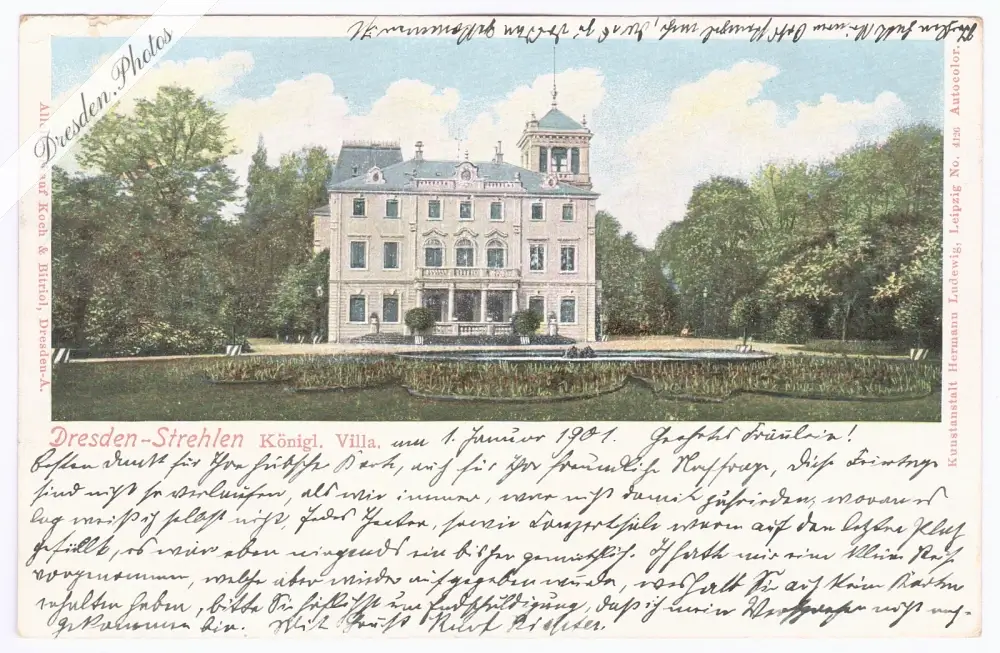 Dresden.Photos
Kunstanstalt Hermann Ludewig, Leipzig No. 4126 Autocolor.
auf Koch & Bitriol, Dresden-A.
Dresden-Strehlen Königl. Villa. am 1. Januar 1901. Geehrtes Fräulein!
besten Dank für Ihre hübsche Karte, auch für Ihre freundliche Nachfrage, diese Feiertage
sind nicht so verlaufen, als wie immer, war nicht damit zufrieden, woran es
lag weiß ich selbst nicht. Jedes Theater, sowie Konzertsäle waren auf den letzten Platz
gefüllt, es war eben nirgends ein bischen gemütlich. Ich hatte mir eine kleine Reise
vorgenommen, welche aber wieder aufgegeben wurde, weshalb Sie auch keine Karten
erhalten haben, bitte Sie höflichst um Entschuldigung, daß ich mein Versprechen nicht nach-
gekommen bin. Mit Gruß Kurt Richter.